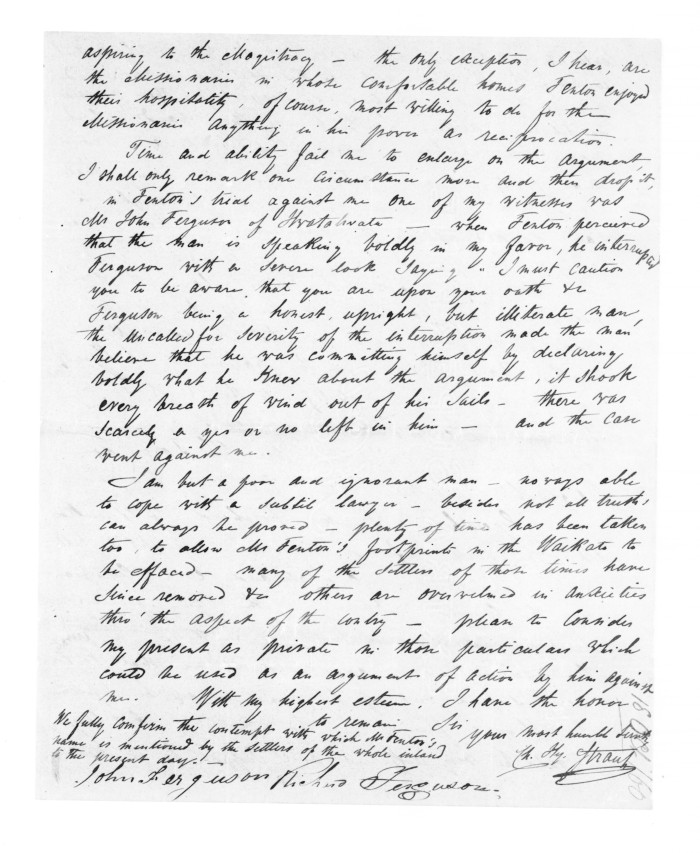 aspiring to the Magistracy – the only exception, I hear, are
the Missionaries in whose comfortable homes Fenton enjoyed
their hospitality, of course, most willing to do for the
Missionaries anything in his power as reciprocation.
Time and ability fail me to enlarge on the argument,
I shall only remark one circumstance more and then drop it,
in Fenton's trial against me one of my witnesses was
Mr John Ferguson of Whatawhata – when Fenton perceived
that the man is speaking boldly in my favor, he interrupted
Ferguson with a severe look saying "I must caution
you to be aware, that you are upon your oath &c
Ferguson being a honest, upright, but illiterate man,
the uncalled for severity of the interruption made the man
believe that he was committing himself by declaring
boldly what he knew about the argument, it shook
every breath of wind out of his sails – there was
scarcely a yes or no left in him – and the case
went against me.
I am but a poor and ignorant man – noways able
to cope with a subtil lawyer – besides not all truths
can always be proved – plenty of time has been taken
too, to allow Mr Fenton's footprints in the Waikato to
be effaced – many of the settlers of those times have
since removed &c others are overwelmed in anxieties
thro' the aspect of the contry – please to consider
my present as private in those particulars which
could be used as an argument of action by him against
me. With my highest esteem, I have the honor
to remain Sir your most humble servt
Ch. Hy. Strauss
We fully comfirm the contempt with which Mr Fenton's
name is mentioned by the settlers of the whole inland
to the present day.
John Ferguson Richard Ferguson.